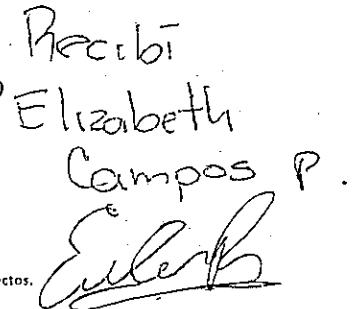 Recibí
Elizabeth
Campos P.
ctos.